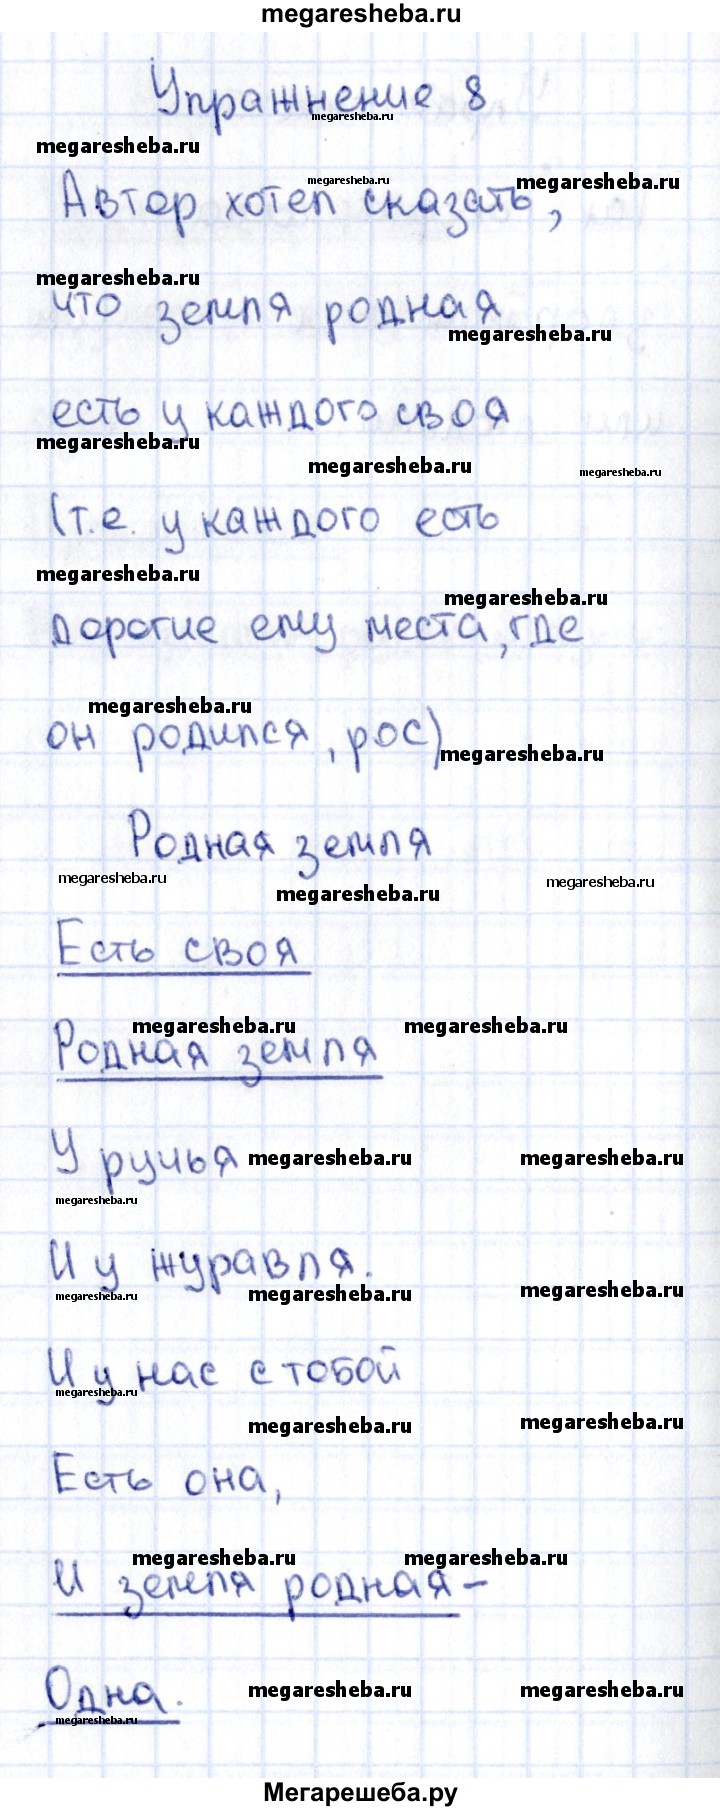 megaresheba.ru
Упражнение 8
megaresheba.ru
megaresheba.ru
megaresheba.ru
megaresheba.ru
Автор хотел сказать,
megaresheba.ru
что земля родная
megaresheba.ru
есть у каждого своя
megaresheba.ru
megaresheba.ru
megaresheba.ru
(т.е. у каждого есть
megaresheba.ru
megaresheba.ru
дорогие ему места, где
megaresheba.ru
он родился, рос)
megaresheba.ru
Родная земля
megaresheba.ru
megaresheba.ru
megaresheba.ru
Есть своя
megaresheba.ru
megaresheba.ru
Родная земля
У ручья
megaresheba.ru
megaresheba.ru
megaresheba.ru
И у журавля.
megaresheba.ru
megaresheba.ru
megaresheba.ru
И у нас с тобой
megaresheba.ru
megaresheba.ru
megaresheba.ru
Есть она,
megaresheba.ru
megaresheba.ru
И земля родная-
Одна.
megaresheba.ru
megaresheba.ru
megaresheba.ru
Мегарешеба.ру